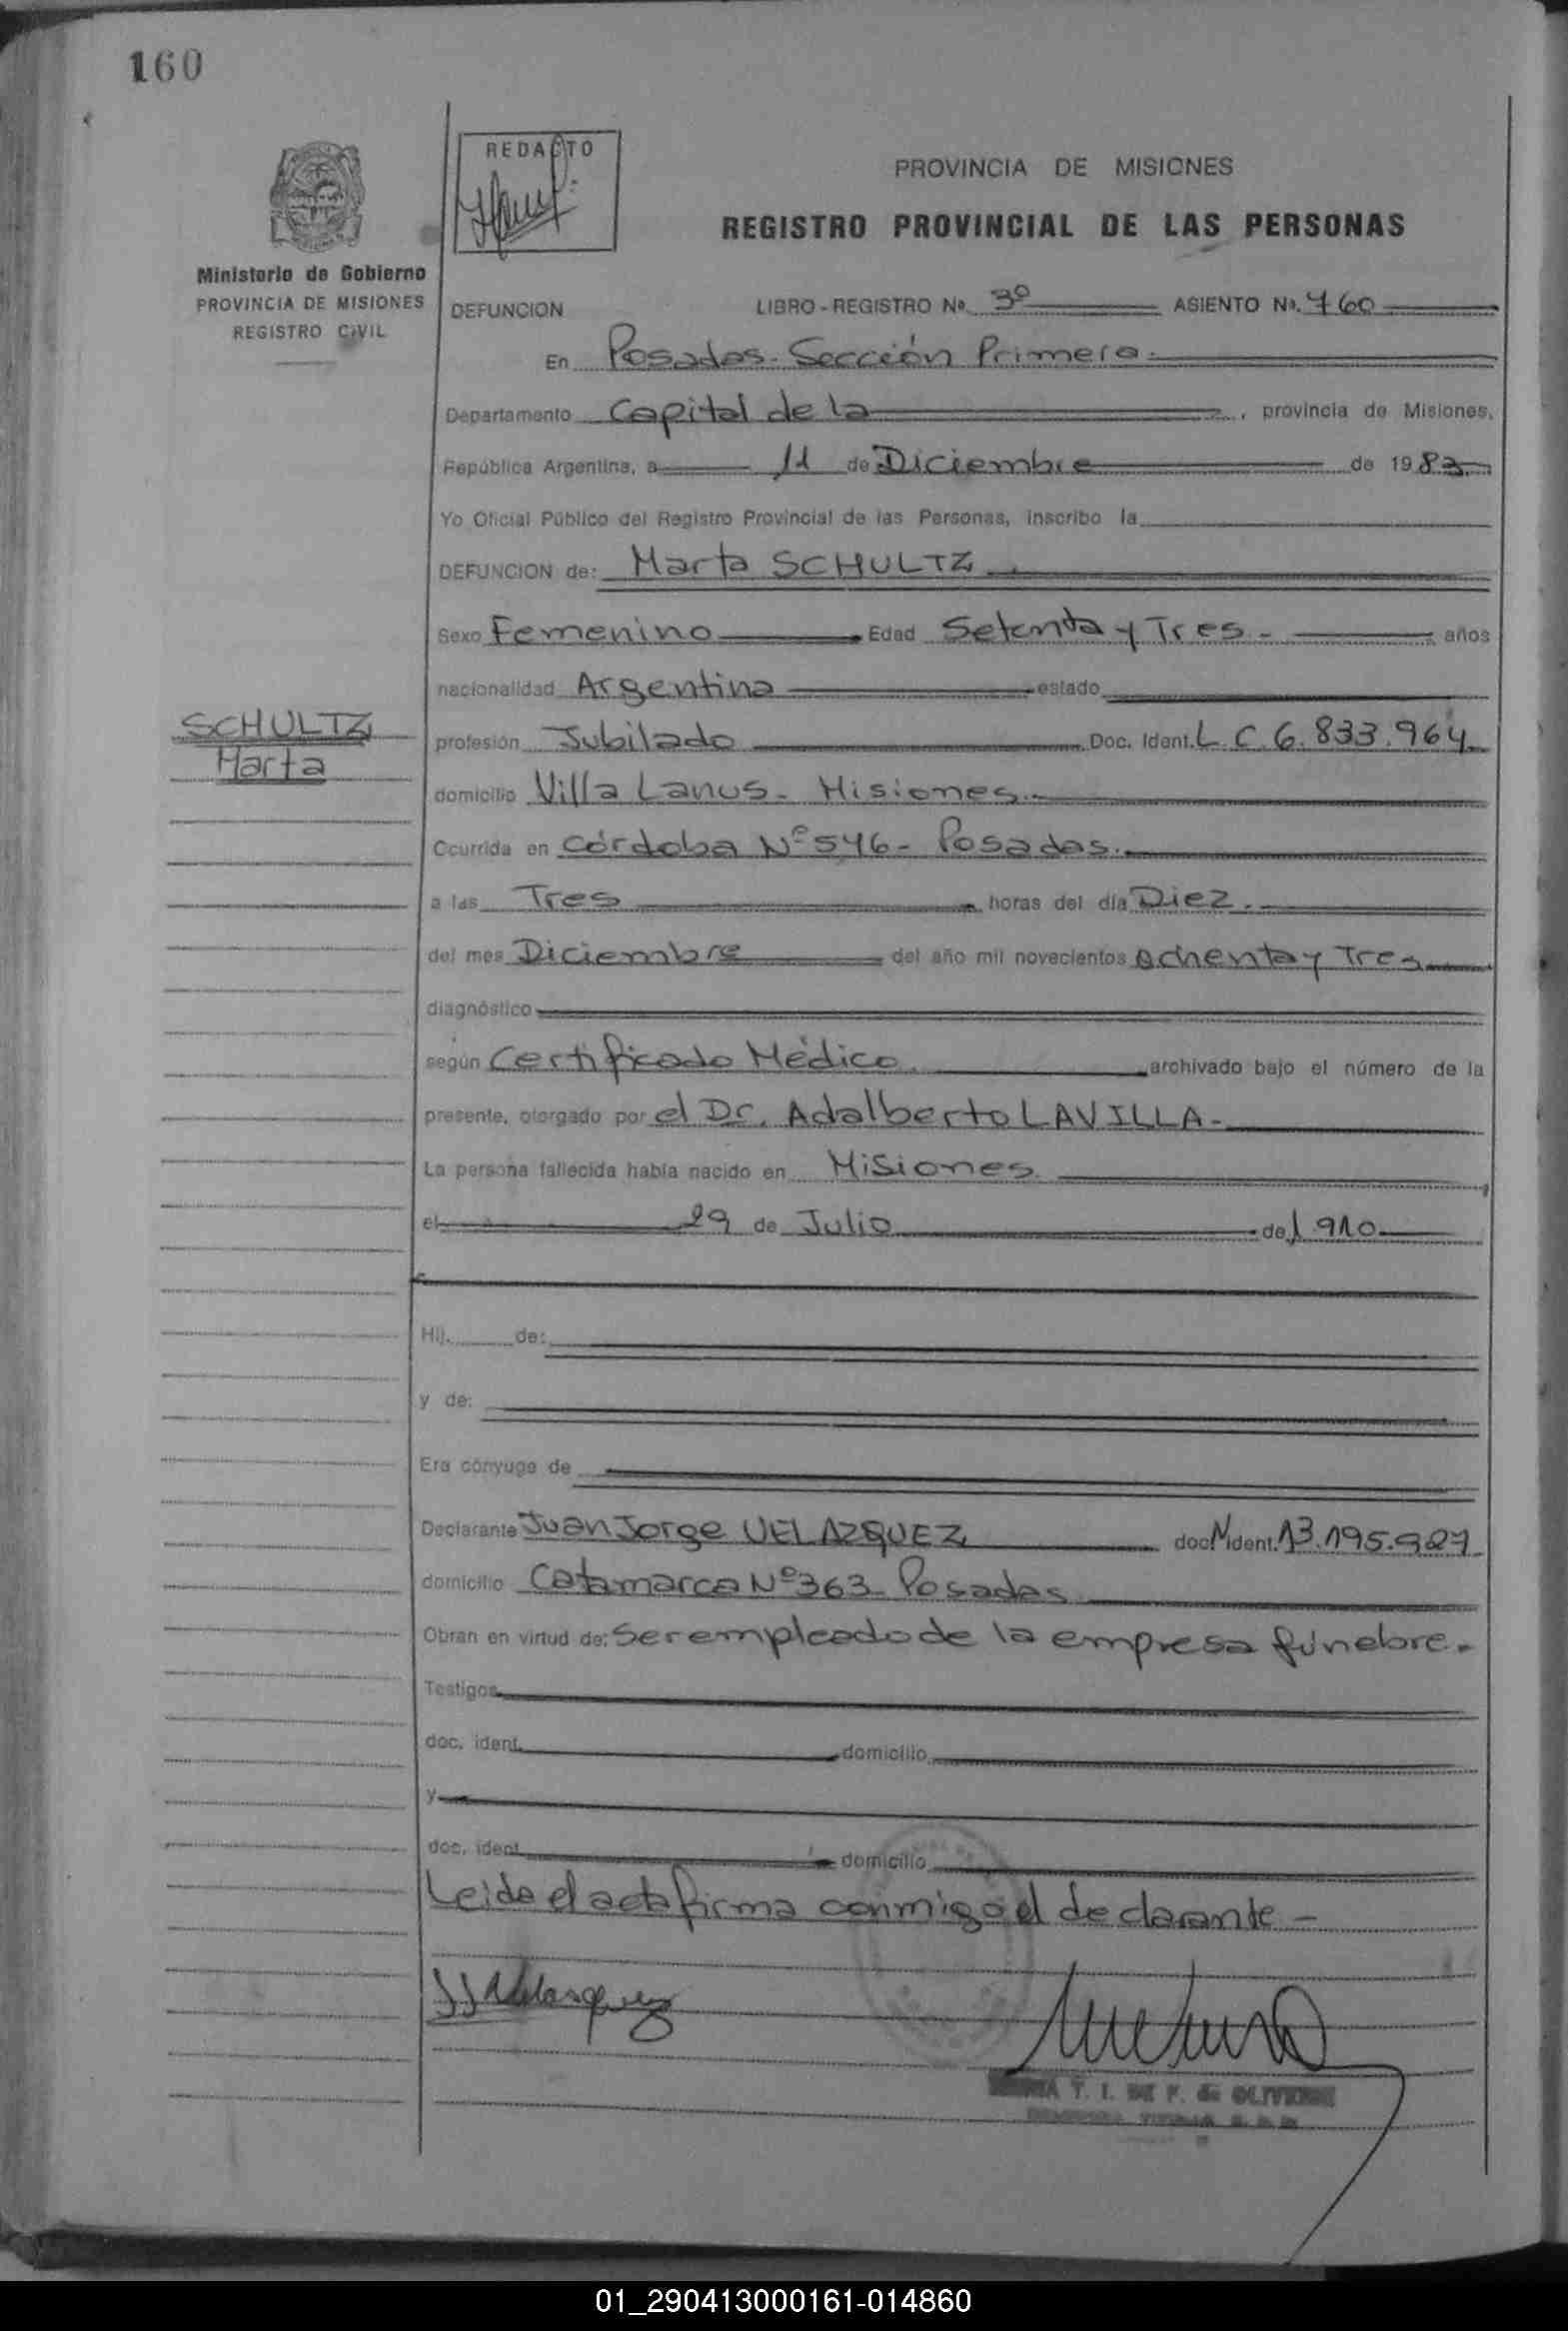 160
REDACTO
PROVINCIA DE MISIONES
REGISTRO PROVINCIAL DE LAS PERSONAS
Ministerio de Gobierno
PROVINCIA DE MISIONES
REGISTRO CIVIL
DEFUNCION LIBRO-REGISTRO No. 3º ASIENTO No. 760
En Posadas - Sección Primera.
Departamento Capital de la , provincia de Misiones,
República Argentina, a 11 de Diciembre de 1983
Yo Oficial Público del Registro Provincial de las Personas, inscribo la
DEFUNCION de: Marta SCHULTZ
Sexo Femenino Edad Setenta y Tres - años
nacionalidad Argentina estado
SCHULTZ
Marta
profesión Jubilado Doc. Ident. L.C. 6.833.964
domicilio Villa Lanus - Misiones
Ocurrida en Córdoba Nº 546 - Posadas.
a las Tres horas del día Diez.
del mes Diciembre del año mil novecientos Ochenta y Tres
diagnóstico
según Certificado Médico archivado bajo el número de la
presente, otorgado por el Dr. Adalberto LAVILLA -
La persona fallecida había nacido en Misiones
el 29 de Julio de 1910
Hij. de:
y de:
Era cónyuge de
Declarante Juan Jorge VELAZQUEZ doc. M ident. 13.195.927
domicilio Catamarca Nº 363 - Posadas
Obran en virtud de: Ser empleado de la empresa fúnebre.
Testigos
doc. ident. domicilio
y
doc. ident. domicilio
Leida el acta firma conmigo el declarante -
JJ Velasquez
T. I. DE F. de OLIVEIRA
01_290413000161-014860